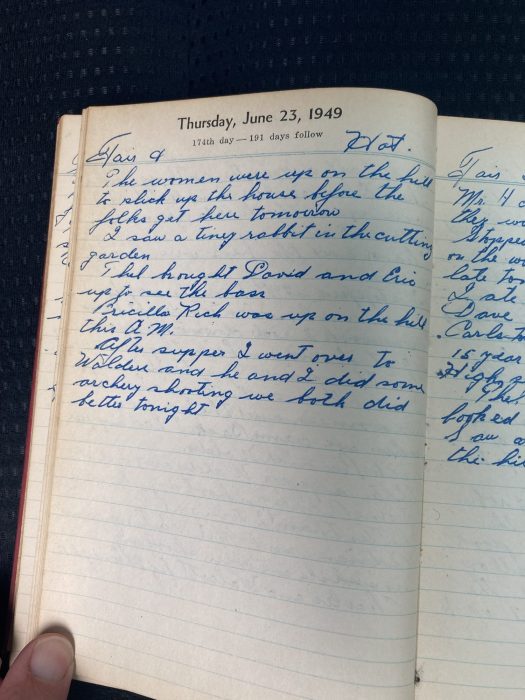 Thursday, June 23, 1949
174th day — 191 days follow
Fair & Hot.
The women were up on the hill
to slick up the house before the
folks get here tomorrow
I saw a tiny rabbit in the cutting
garden
Thel bought David and Eric
up to see the bass
Pricilla Rich was up on the hill
this A.M.
After supper I went over to
Waldens and he and I did some
archery shooting we both did
better tonight
Fair
Mr. H
they
Stoppe
on the
late
I
Dave
Carls
15 year
booked
Saw
the